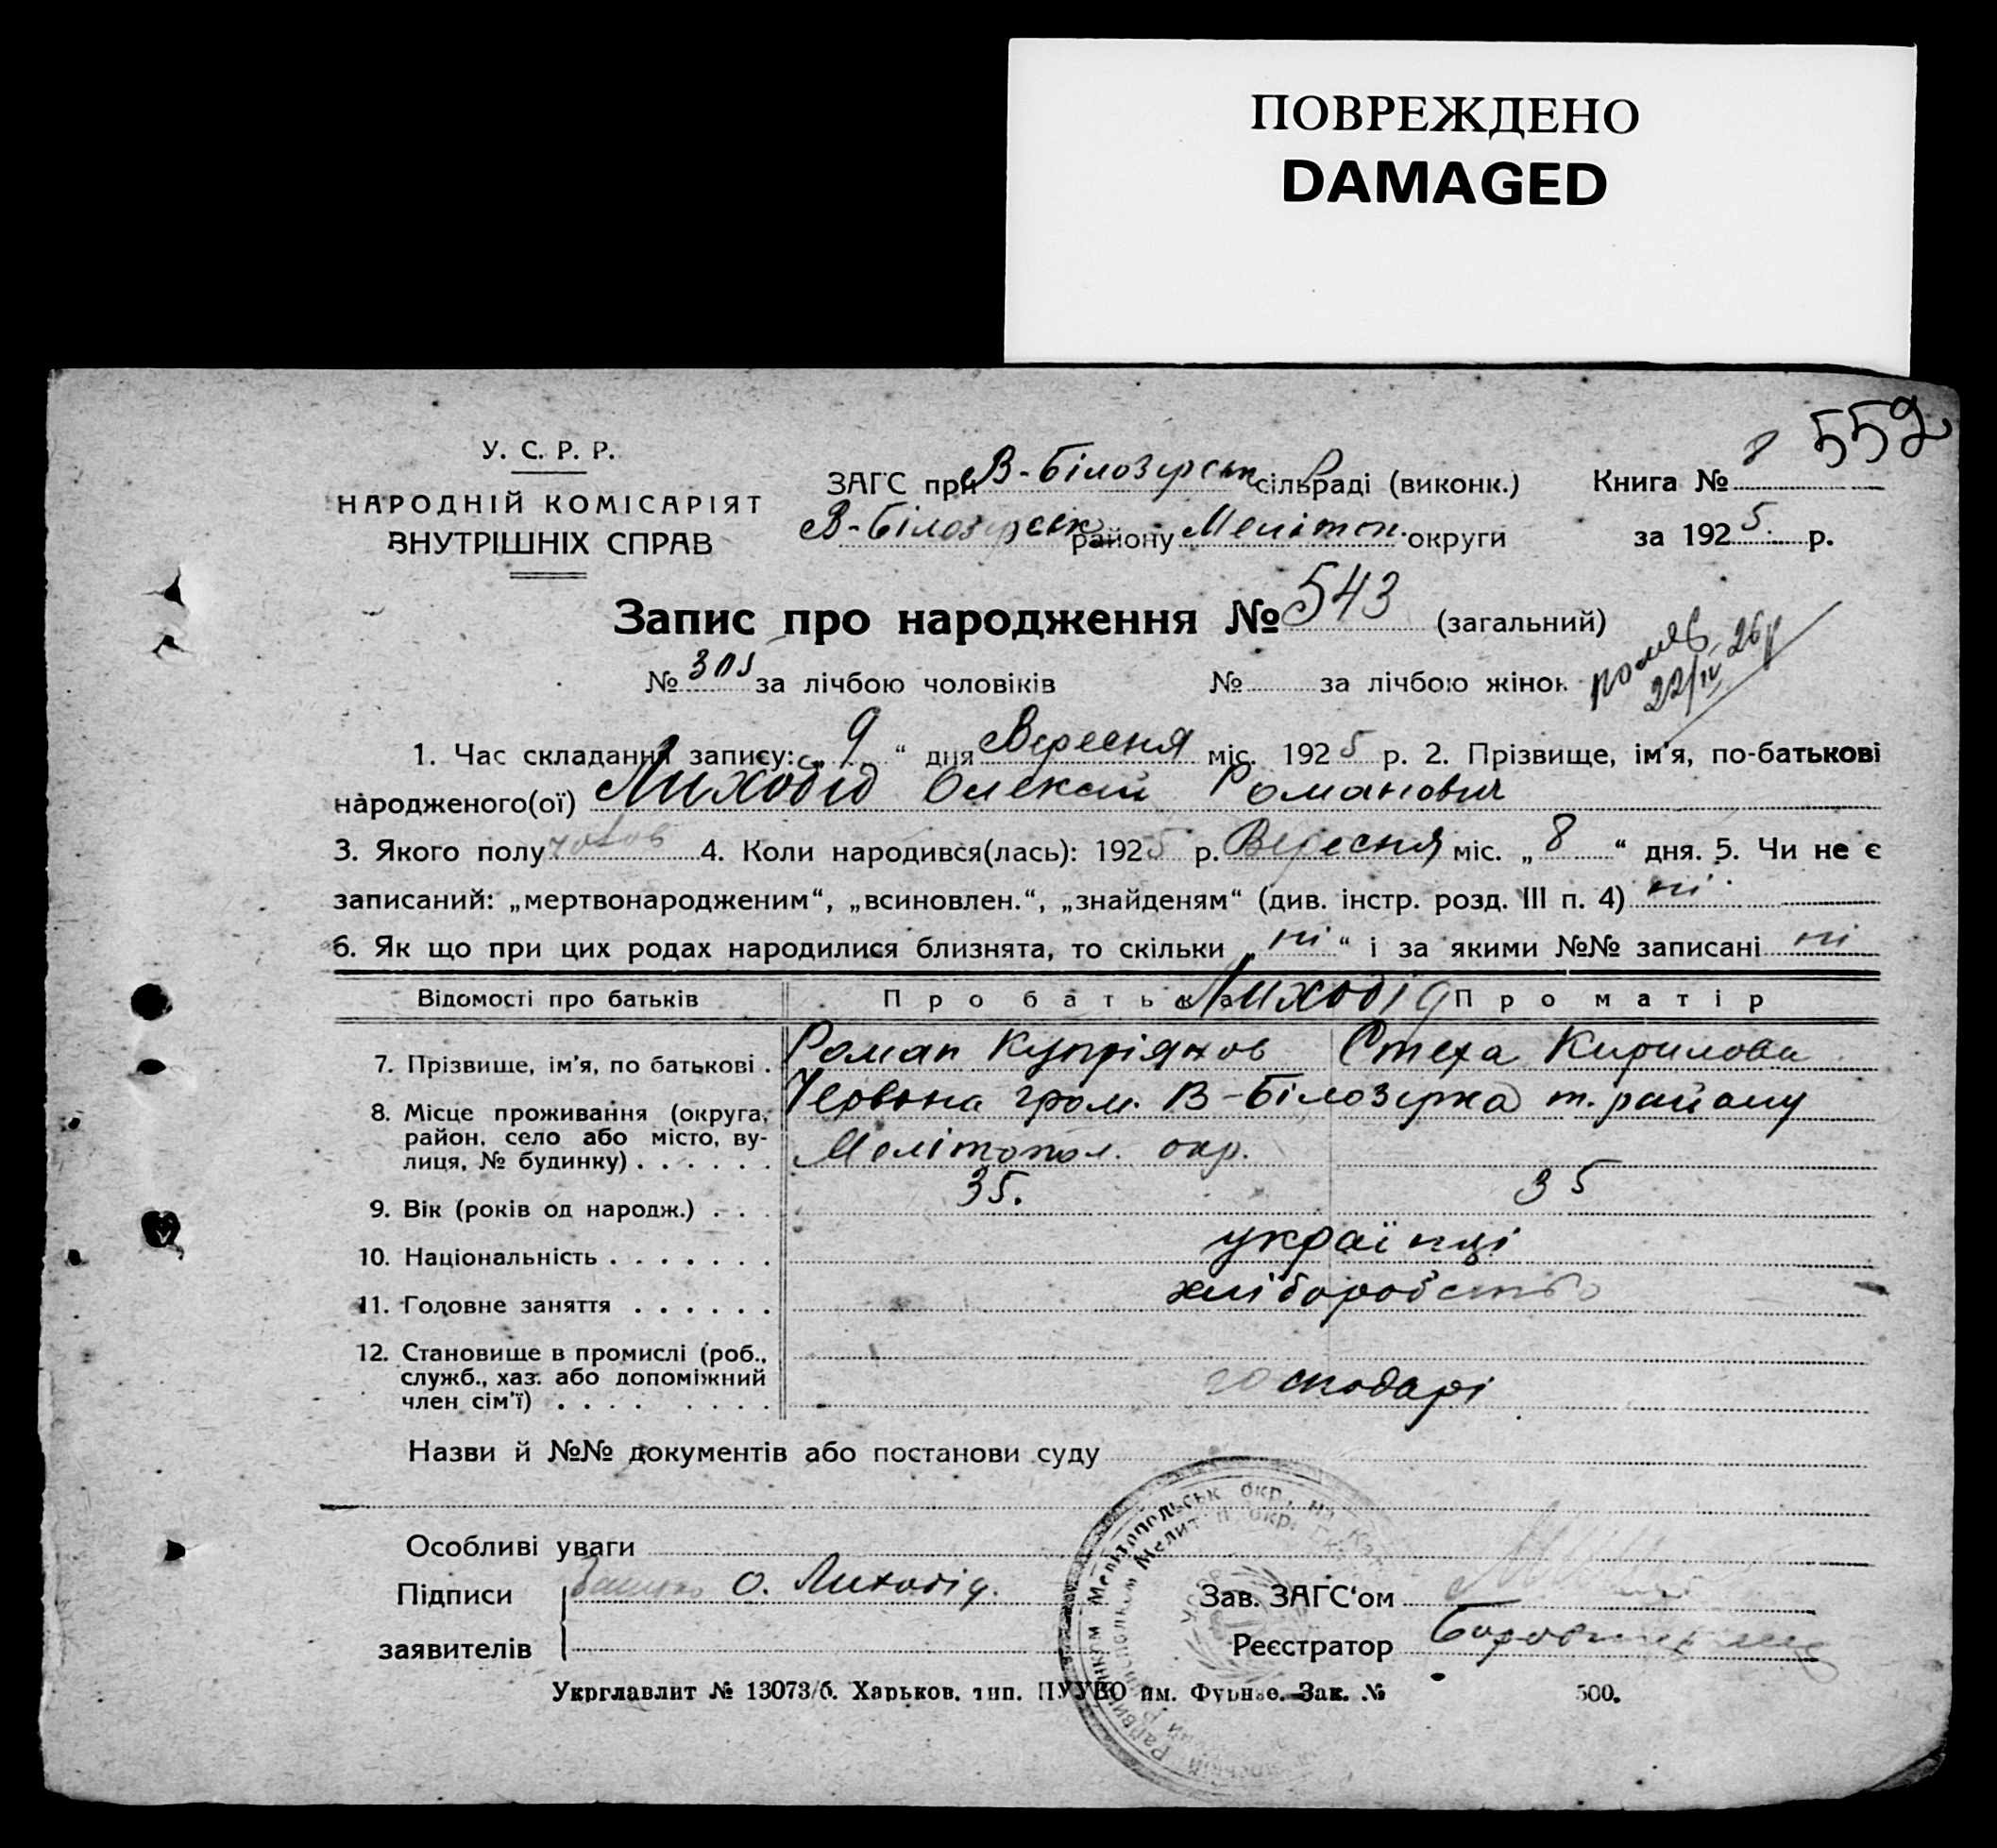 ПОВРЕЖДЕНО
DAMAGED
559
У. С. Р. Р.
НАРОДНІЙ КОМІСАРІЯТ
ВНУТРІШНІХ СПРАВ
ЗАГС при В-Білозірськ сільраді (виконк.) Книга № 8
В-Білозірськ району Мелітоп. округи за 1925 р.
Запис про народження № 543 (загальний)
№ 301 за лічбою чоловіків № за лічбою жінок
22/IV 26р
1. Час складання запису: „9“ дня Вересня міс. 1925 р. 2. Прізвище, ім'я, по-батькові
народженого(ої) Лиходід Олексій Романович
3. Якого полу чолов 4. Коли народився(лась): 1925 р. Вересня міс. „8“ дня. 5. Чи не є
записаний: „мертвонародженим“, „всиновлен.“, „знайденям“ (див. інстр. розд. III п. 4) ні
6. Як що при цих родах народилися близнята, то скільки „ні“ і за якими №№ записані ні
Відомості про батьків Про батька Лиходід Про матір
7. Прізвище, ім'я, по батькові . Роман Купріянов Стеха Кирилова
8. Місце проживання (округа, Червона гром. В-Білозірка т. району
район, село або місто, ву- Мелітопол. окр.
лиця, № будинку) . . . . . .
9. Вік (років од народж.) . . . 35. 35
10. Національність . . . . . . . українці
11. Головне заняття . . . . . . хліборобство
12. Становище в промислі (роб.,
служб., хаз. або допоміжний господарі
член сім'ї) . . . . . . . .
Назви й №№ документів або постанови суду
Особливі уваги
Підписи О. Лиходід. Зав. ЗАГС'ом
заявителів Реєстратор
Укрглавлит № 13073/б. Харьков. тип. ПУУВО им. Фрунзе. Зак. № 500.